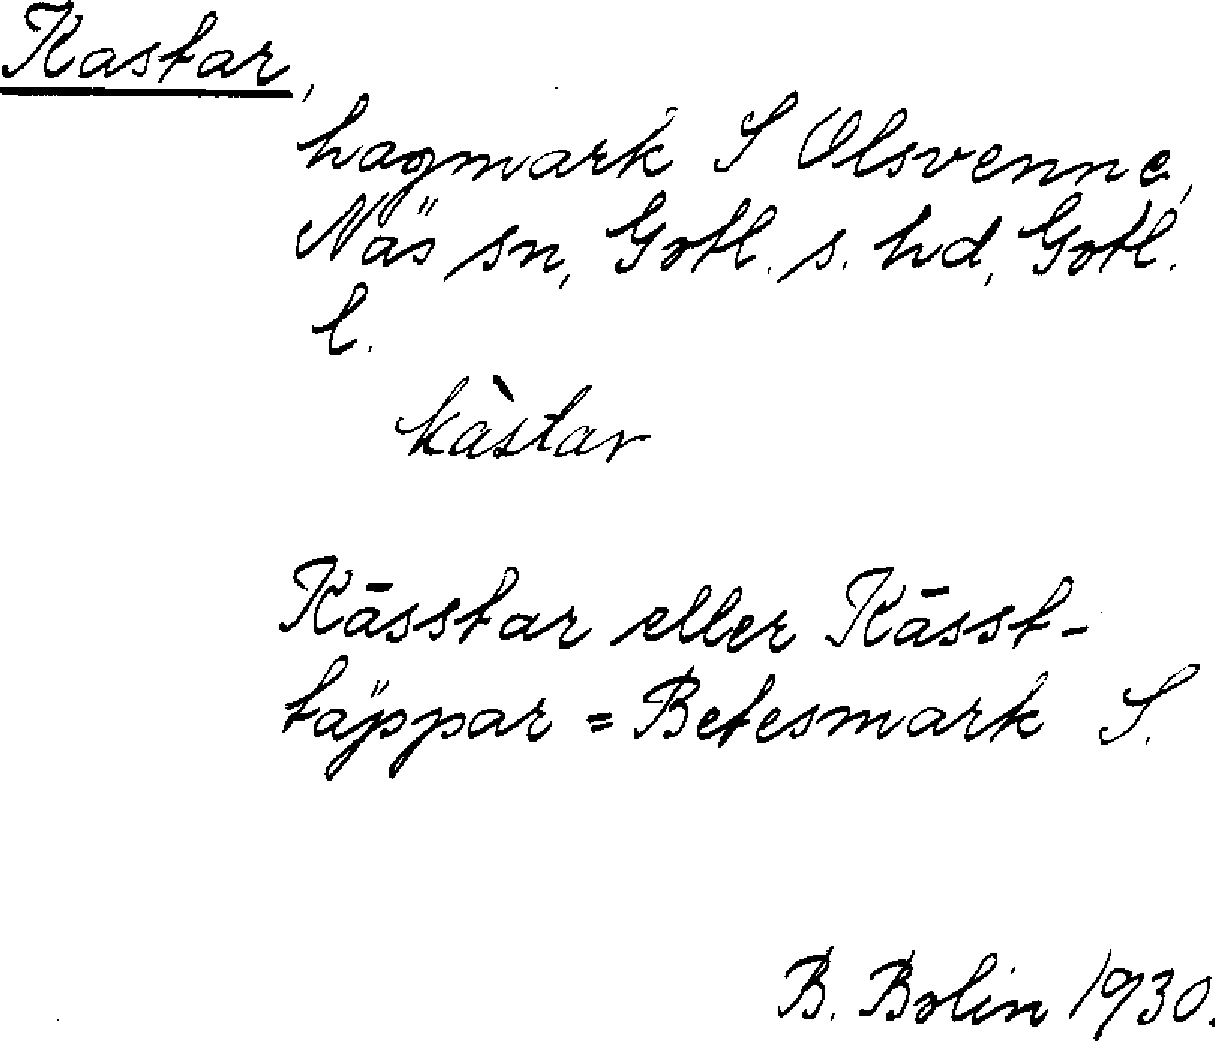 Kastar,
hagmark S Olsvenne,
Näs sn, Gotl. s. hd, Gotl.
l.
kàstar
Kāsstar eller Kāsst-
täppar = Betesmark S.
B. Bolin 1930.